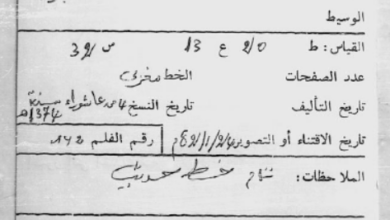 الوسيط
القياس: ط 2/0 ع 13 س 32
عدد الصفحات الخط مغربي
تاريخ التأليف تاريخ النسخ عاشوراء سنة 1374هـ
تاريخ الاقتناء أو التصوير رقم الفلم
الملاحظات: تام خط حديث